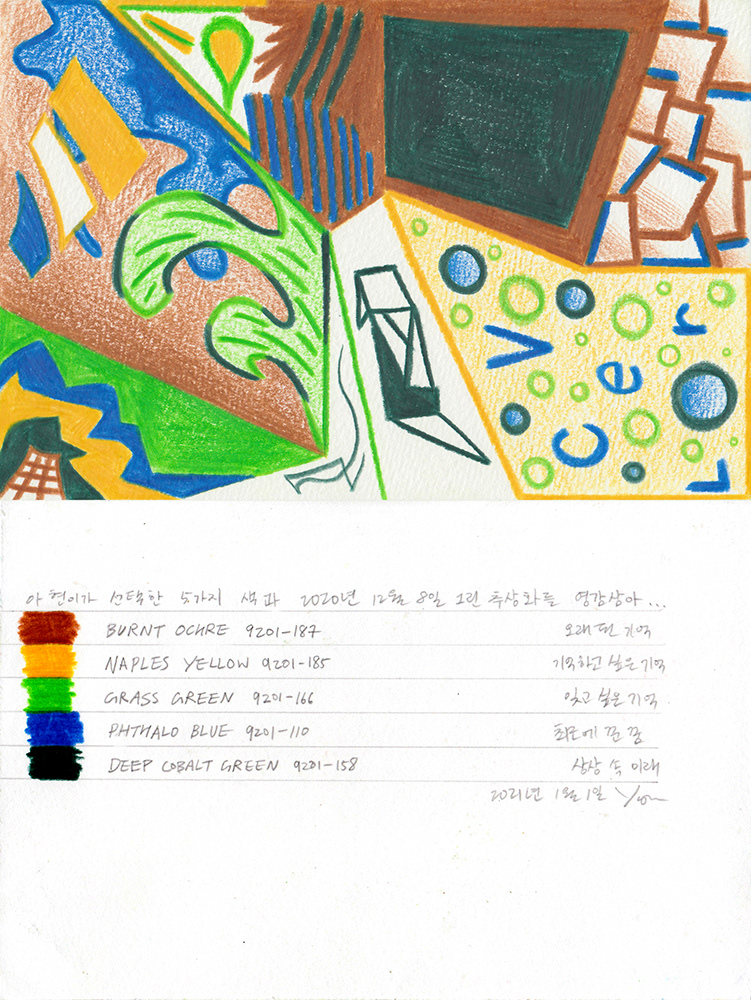 Clever
아현이가 선택한 5가지 색과 2020년 12월 8일 그린 추상화를 영감삼아...
BURNT OCHRE 9201-187 오래된 기억
NAPLES YELLOW 9201-185 기억하고 싶은 기억
GRASS GREEN 9201-166 잊고 싶은 기억
PHTHALO BLUE 9201-110 최근에 꾼 꿈
DEEP COBALT GREEN 9201-158 상상 속 미래
2021년 1월 1일